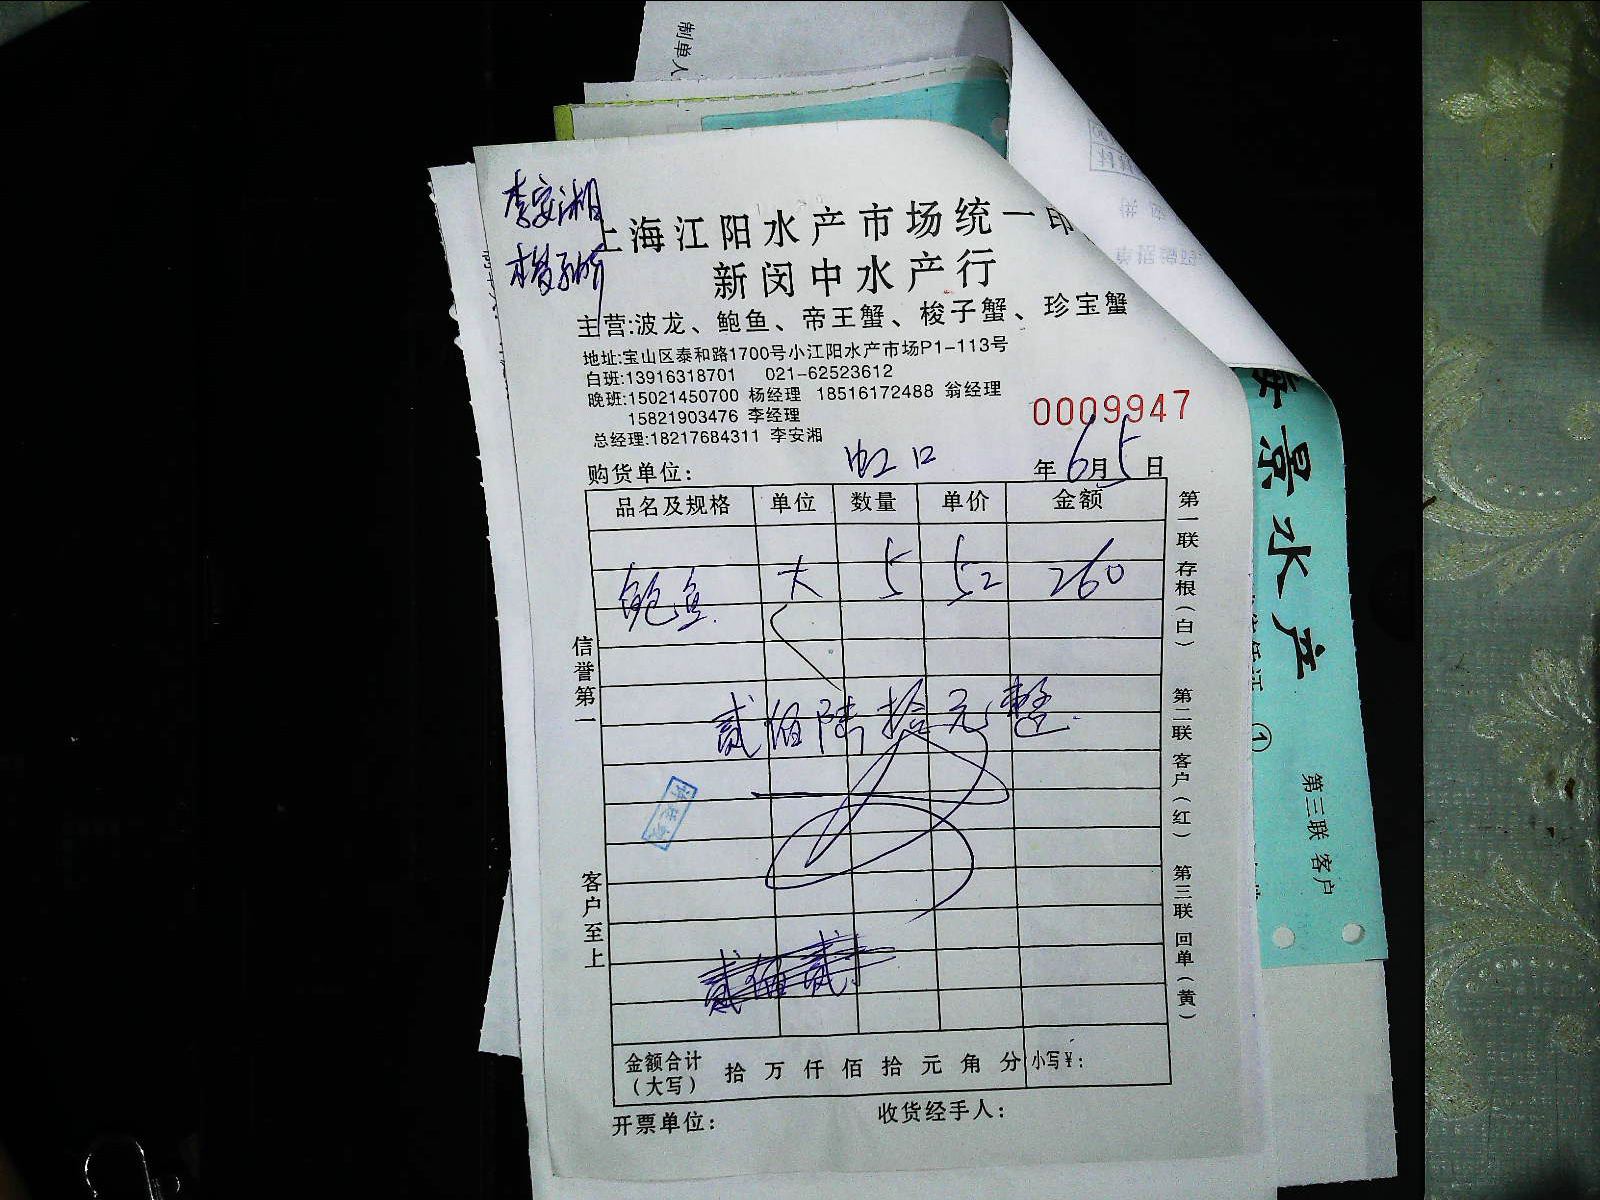 制单人
李安湘
上海江阳水产市场统一印
新闵中水产行
主营:波龙、鲍鱼、帝王蟹、梭子蟹、珍宝蟹
地址:宝山区泰和路1700号小江阳水产市场P1-113号
白班:13916318701 021-62523612
晚班:15021450700 杨经理 18516172488 翁经理
15821903476 李经理
总经理:18217684311 李安湘
0009947
购货单位: 虹口 年6月5日
品名及规格 单位 数量 单价 金额
鲍鱼 大 5 52 260
贰佰陆拾元整
金额合计(大写) 拾 万 仟 佰 拾 元 角 分 小写¥:
开票单位: 收货经手人:
信誉第一
客户至上
第一联 存根(白)
第二联 客户(红)
第三联 回单(黄)
景水产
①
第三联 客户